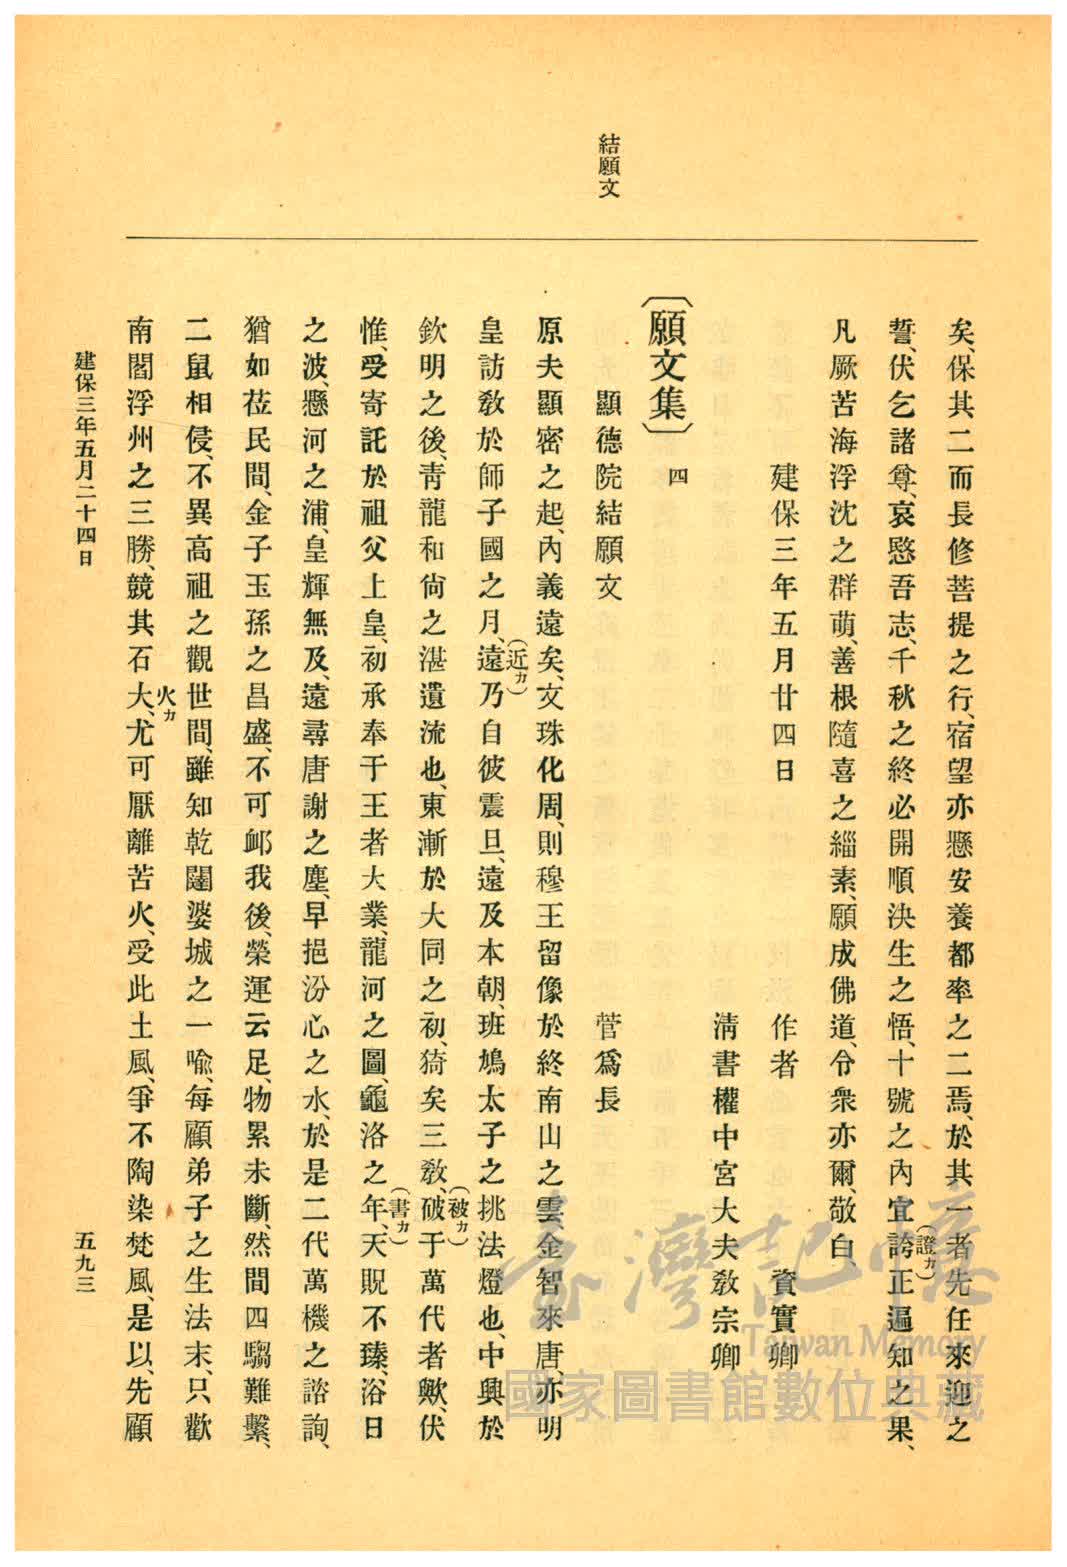 結願文
矣、保其二而長修菩提之行、宿望亦懸安養都率之二焉、於其一者先任來迎之
誓、伏乞諸尊、哀愍吾志、千秋之終必開順決生之悟、十號之內宜誇(證カ)正遍知之果、
凡厥苦海浮沈之群萌、善根隨喜之緇素、願成佛道、令衆亦爾、敬白、
建保三年五月廿四日 作者 資實卿
淸書權中宮大夫敎宗卿
〔願文集〕 四
顯德院結願文 菅爲長
原夫顯密之起、內義遠矣、文珠化周、則穆王留像於終南山之雲、金智來唐、亦明
皇訪敎於師子國之月、遠(近カ)乃自彼震旦、遠及本朝、班鳩太子之挑法燈也、中興於
欽明之後、靑龍和尙之湛遺流也、東漸於大同之初、猗矣三敎、破(被カ)于萬代者歟、伏
惟、受寄託於祖父上皇、初承奉于王者大業、龍河之圖、龜洛之年(書カ)、天貺不臻、浴日
之波、懸河之浦、皇輝無及、遠尋唐謝之塵、早挹汾心之水、於是二代萬機之諮詢、
猶如莅民間、金子玉孫之昌盛、不可邮我後、榮運云足、物累未斷、然間四騶難繫、
二鼠相侵、不異高祖之觀世間、雖知乾闥婆城之一喩、每顧弟子之生法末、只歡
南閻浮州之三勝、競其石大(火カ)、尤可厭離苦火、受此土風、爭不陶染梵風、是以、先顧
建保三年五月二十四日 五九三
臺灣記憶
Taiwan Memory
國家圖書館數位典藏